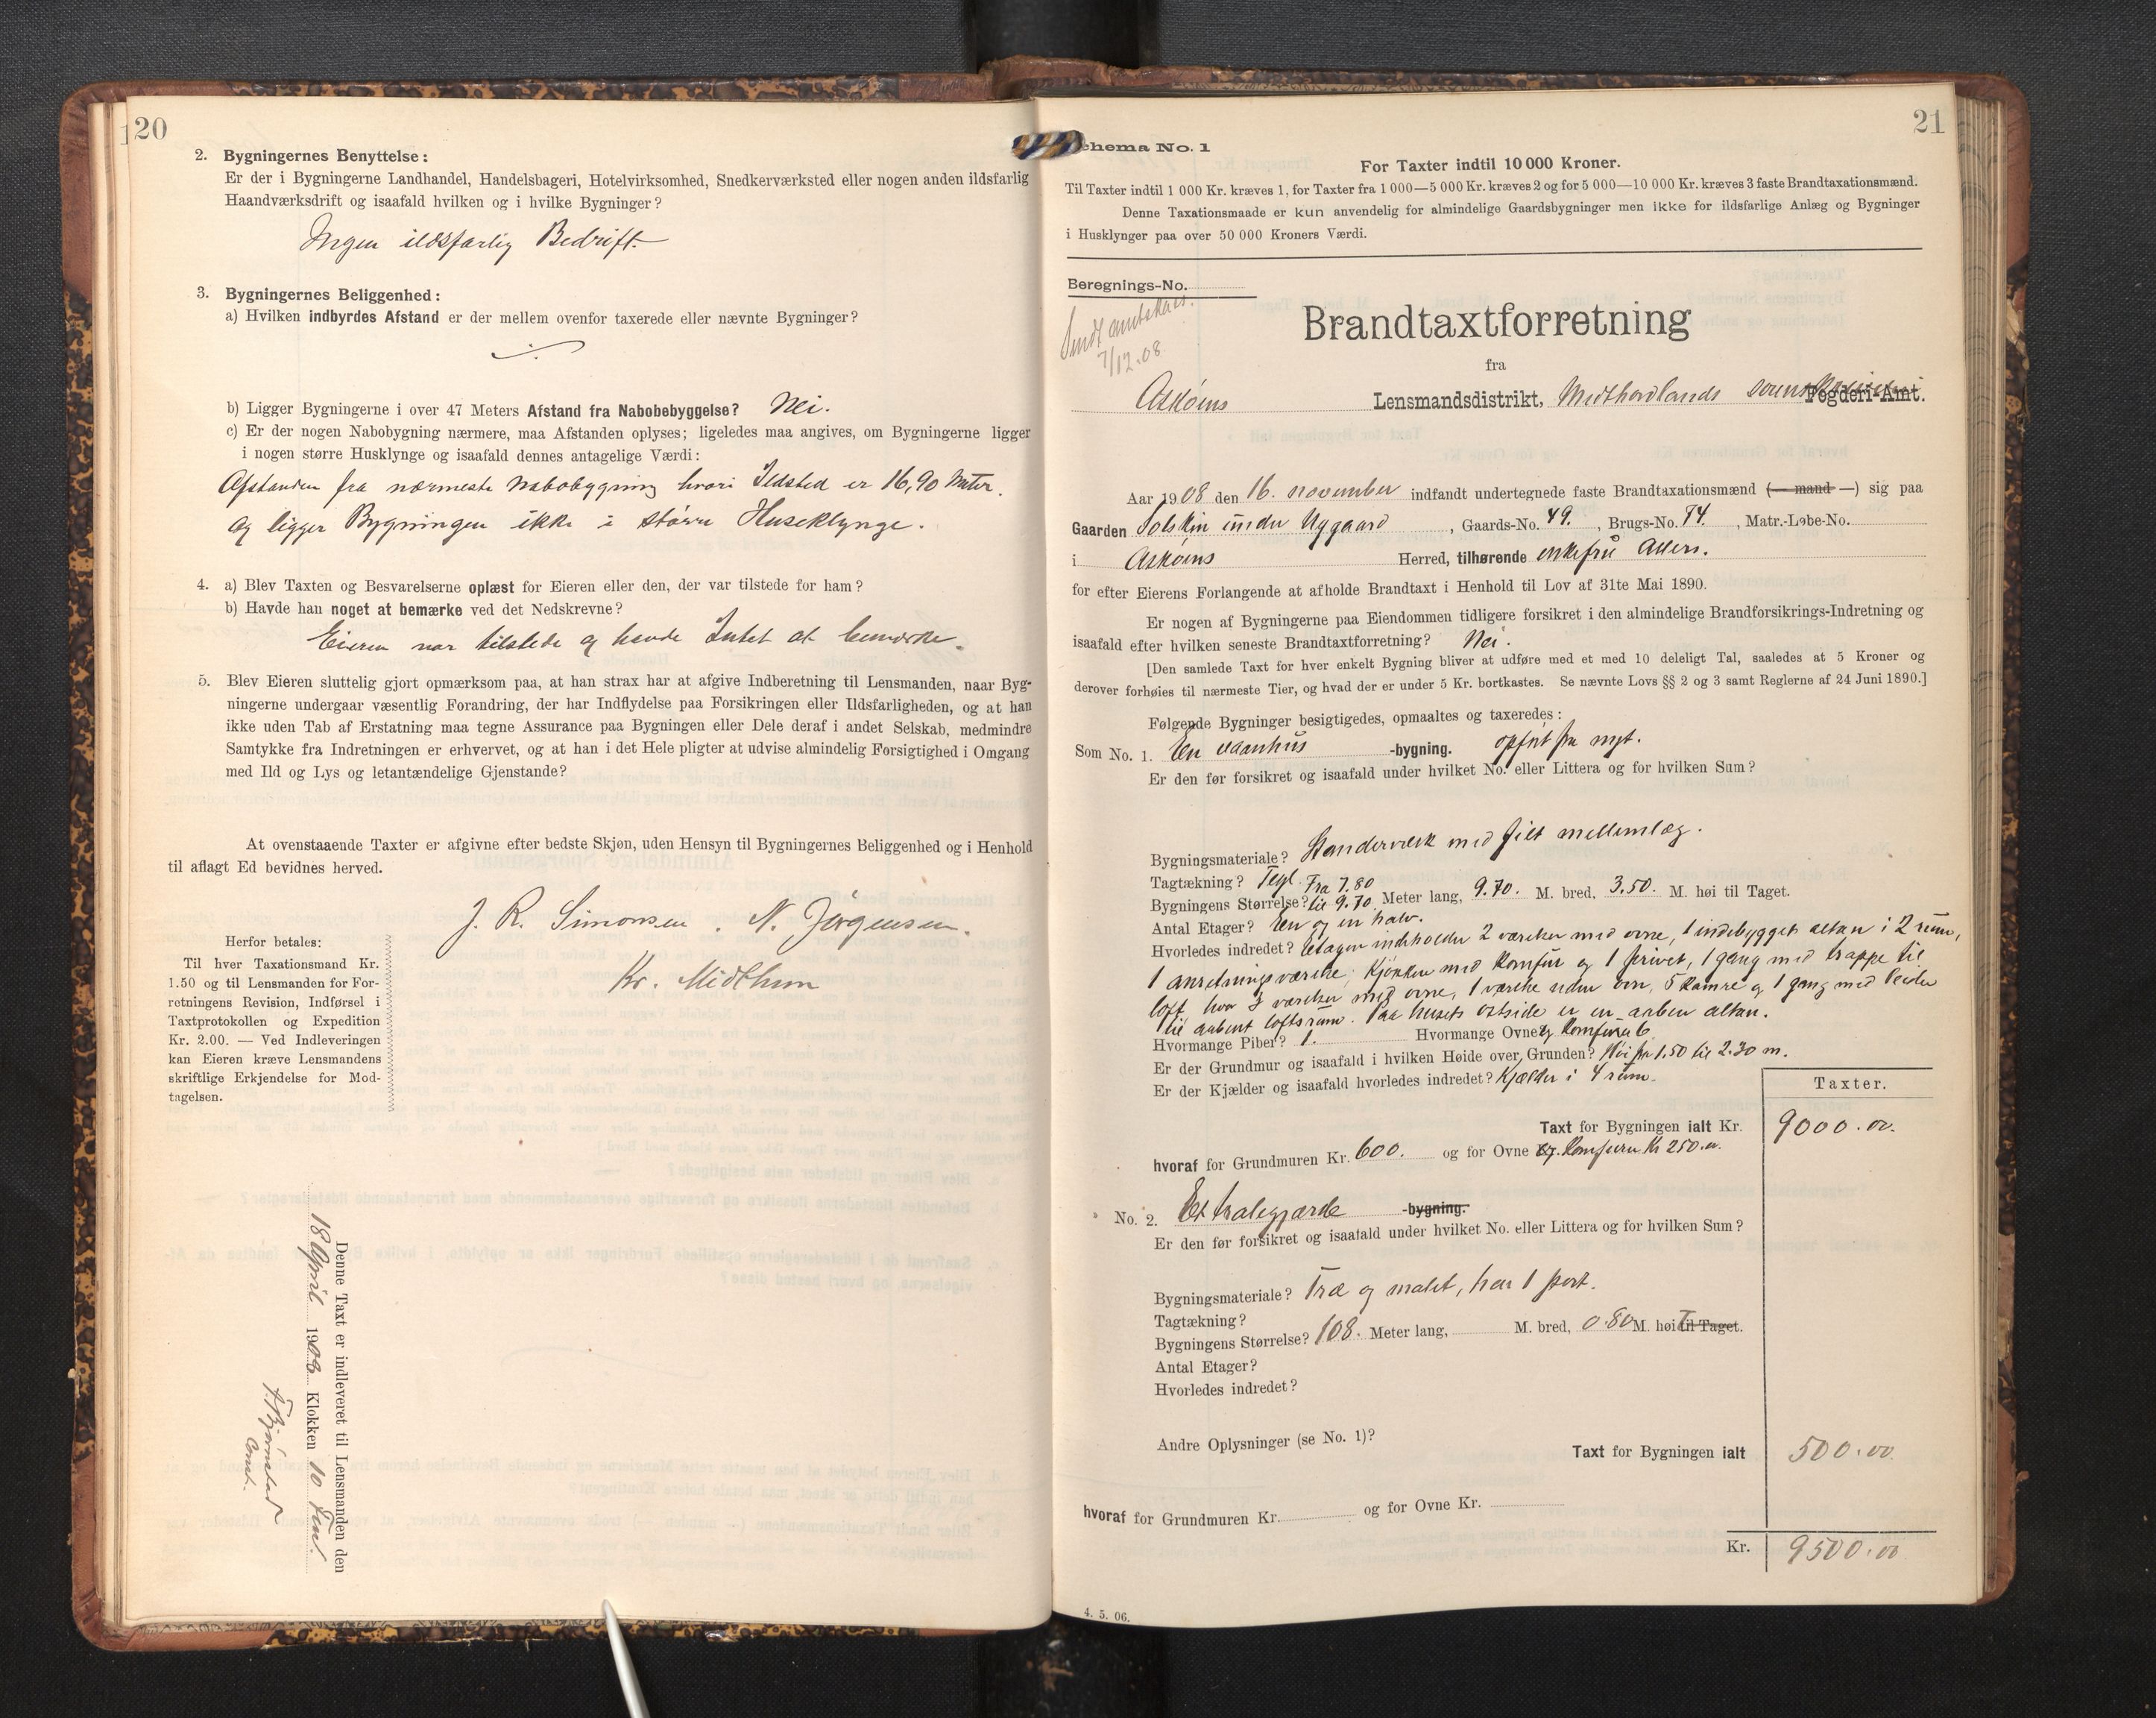 120
2. Bygningernes Benyttelse:
Er der i Bygningerne Landhandel, Handelsbageri, Hotelvirksomhed, Snedkerværksted eller nogen anden ildsfarlig
Haandværksdrift og isaafald hvilken og i hvilke Bygninger?
Ingen ildsfarlig Bedrift.
3. Bygningernes Beliggenhed:
a) Hvilken indbyrdes Afstand er der mellem ovenfor taxerede eller nævnte Bygninger?
b) Ligger Bygningerne i over 47 Meters Afstand fra Nabobebyggelse? Nei.
c) Er der nogen Nabobygning nærmere, maa Afstanden oplyses; ligeledes maa angives, om Bygningerne ligger
i nogen større Husklynge og isaafald dennes antagelige Værdi:
Afstanden fra nærmeste Nabobygning hvori Ildsted er 16,90 Meter.
og ligger Bygningen ikke i større Huseklynge.
4. a) Blev Taxten og Besvarelserne oplæst for Eieren eller den, der var tilstede for ham?
b) Havde han noget at bemærke ved det Nedskrevne?
Eieren var tilstede og havde Intet at bemærke.
5. Blev Eieren sluttelig gjort opmærksom paa, at han strax har at afgive Indberetning til Lensmanden, naar Byg-
ningerne undergaar væsentlig Forandring, der har Indflydelse paa Forsikringen eller Ildsfarligheden, og at han
ikke uden Tab af Erstatning maa tegne Assurance paa Bygningen eller Dele deraf i andet Selskab, medmindre
Samtykke fra Indretningen er erhvervet, og at han i det Hele pligter at udvise almindelig Forsigtighed i Omgang
med Ild og Lys og letantændelige Gjenstande?
At ovenstaaende Taxter er afgivne efter bedste Skjøn, uden Hensyn til Bygningernes Beliggenhed og i Henhold
til aflagt Ed bevidnes herved.
J. R. Simonsen. N. Jørgensen.
Kr. Midthun
Herfor betales:
Til hver Taxationsmand Kr.
1.50 og til Lensmanden for For-
retningens Revision, Indførsel i
Taxtprotokollen og Expedition
Kr. 2.00. — Ved Indleveringen
kan Eieren kræve Lensmandens
skriftlige Erkjendelse for Mod-
tagelsen.
Denne Taxt er indleveret til Lensmanden den
18 April 1908 Klokken 10 Fm.
21
Schema No. 1
For Taxter indtil 10 000 Kroner.
Til Taxter indtil 1 000 Kr. kræves 1, for Taxter fra 1 000—5 000 Kr. kræves 2 og for 5 000—10 000 Kr. kræves 3 faste Brandtaxationsmænd.
Denne Taxationsmaade er kun anvendelig for almindelige Gaardsbygninger men ikke for ildsfarlige Anlæg og Bygninger
i Husklynger paa over 50 000 Kroners Værdi.
Beregnings-No.
Sendt amtskass.
7/12.08
Brandtaxtforretning
fra
Askøens Lensmandsdistrikt, Midthordlands sorenskriveri Fogderi-Amt.
Aar 1908 den 16. november indfandt undertegnede faste Brandtaxationsmænd (— mand —) sig paa
Gaarden Solskin under Nygaard, Gaards-No. 49., Brugs-No. 74., Matr.-Løbe-No.
i Askøens Herred, tilhørende enkefru Allers.
for efter Eierens Forlangende at afholde Brandtaxt i Henhold til Lov af 31te Mai 1890.
Er nogen af Bygningerne paa Eiendommen tidligere forsikret i den almindelige Brandforsikrings-Indretning og
isaafald efter hvilken seneste Brandtaxtforretning? Nei.
[Den samlede Taxt for hver enkelt Bygning bliver at udføre med et med 10 deleligt Tal, saaledes at 5 Kroner og
derover forhøies til nærmeste Tier, og hvad der er under 5 Kr. bortkastes. Se nævnte Lovs §§ 2 og 3 samt Reglerne af 24 Juni 1890.]
Følgende Bygninger besigtigedes, opmaaltes og taxeredes:
Som No. 1. En vaanhus -bygning. opført fra nyt.
Er den før forsikret og isaafald under hvilket No. eller Littera og for hvilken Sum?
Bygningsmateriale? Standerværk med filt mellemlæg.
Tagtækning? Tegl.
Bygningens Størrelse? Fra 7.80 til 9.70 Meter lang, 9.70. M. bred, 3.50. M. høi til Taget.
Antal Etager? En og en halv.
Hvorledes indredet? Etagen indeholder 2 værelser med ovne, 1 indebygget altan i 2 rum,
1 anretningsværelse, Kjøkken med Komfur og 1 privet, 1 gang med trappe til
loft, hvor 3 værelser med ovne, 1 værelse uden ovn, 5 kamre og 1 gang med leider
til aabent loftsrum. Paa husets østside er en aaben altan.
Hvormange Piber? 1. Hvormange Ovne og Komfurer 6.
Er der Grundmur og isaafald i hvilken Høide over Grunden? Høi fra 1.50 til 2.30 m.
Er der Kjælder og isaafald hvorledes indredet? Kjælder i 4 rum.
Taxter.
Taxt for Bygningen ialt Kr. 9000.00.
hvoraf for Grundmuren Kr. 600. og for Ovne og Komfuren Kr 250.00.
No. 2. Et halegjærde -bygning.
Er den før forsikret og isaafald under hvilket No. eller Littera og for hvilken Sum?
Bygningsmateriale? Træ og malet, har 1 port.
Tagtækning?
Bygningens Størrelse? 108. Meter lang, M. bred, 0.80 M. høi til Taget.
Antal Etager?
Hvorledes indredet?
Andre Oplysninger (se No. 1)?
Taxt for Bygningen ialt 500.00.
hvoraf for Grundmuren Kr. og for Ovne Kr.
Kr. 9500.00
4. 5. 06.